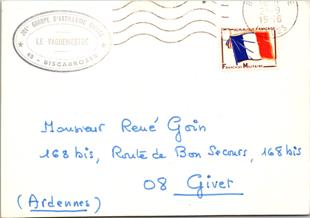 LE VAGUEMESTRE
40 - BISCARROSSE
RÉPUBLIQUE FRANÇAISE
FRANCHISE MILITAIRE
Monsieur René Goin
168 bis, Route de Bon Secours, 168 bis
08 Givet
(Ardennes)